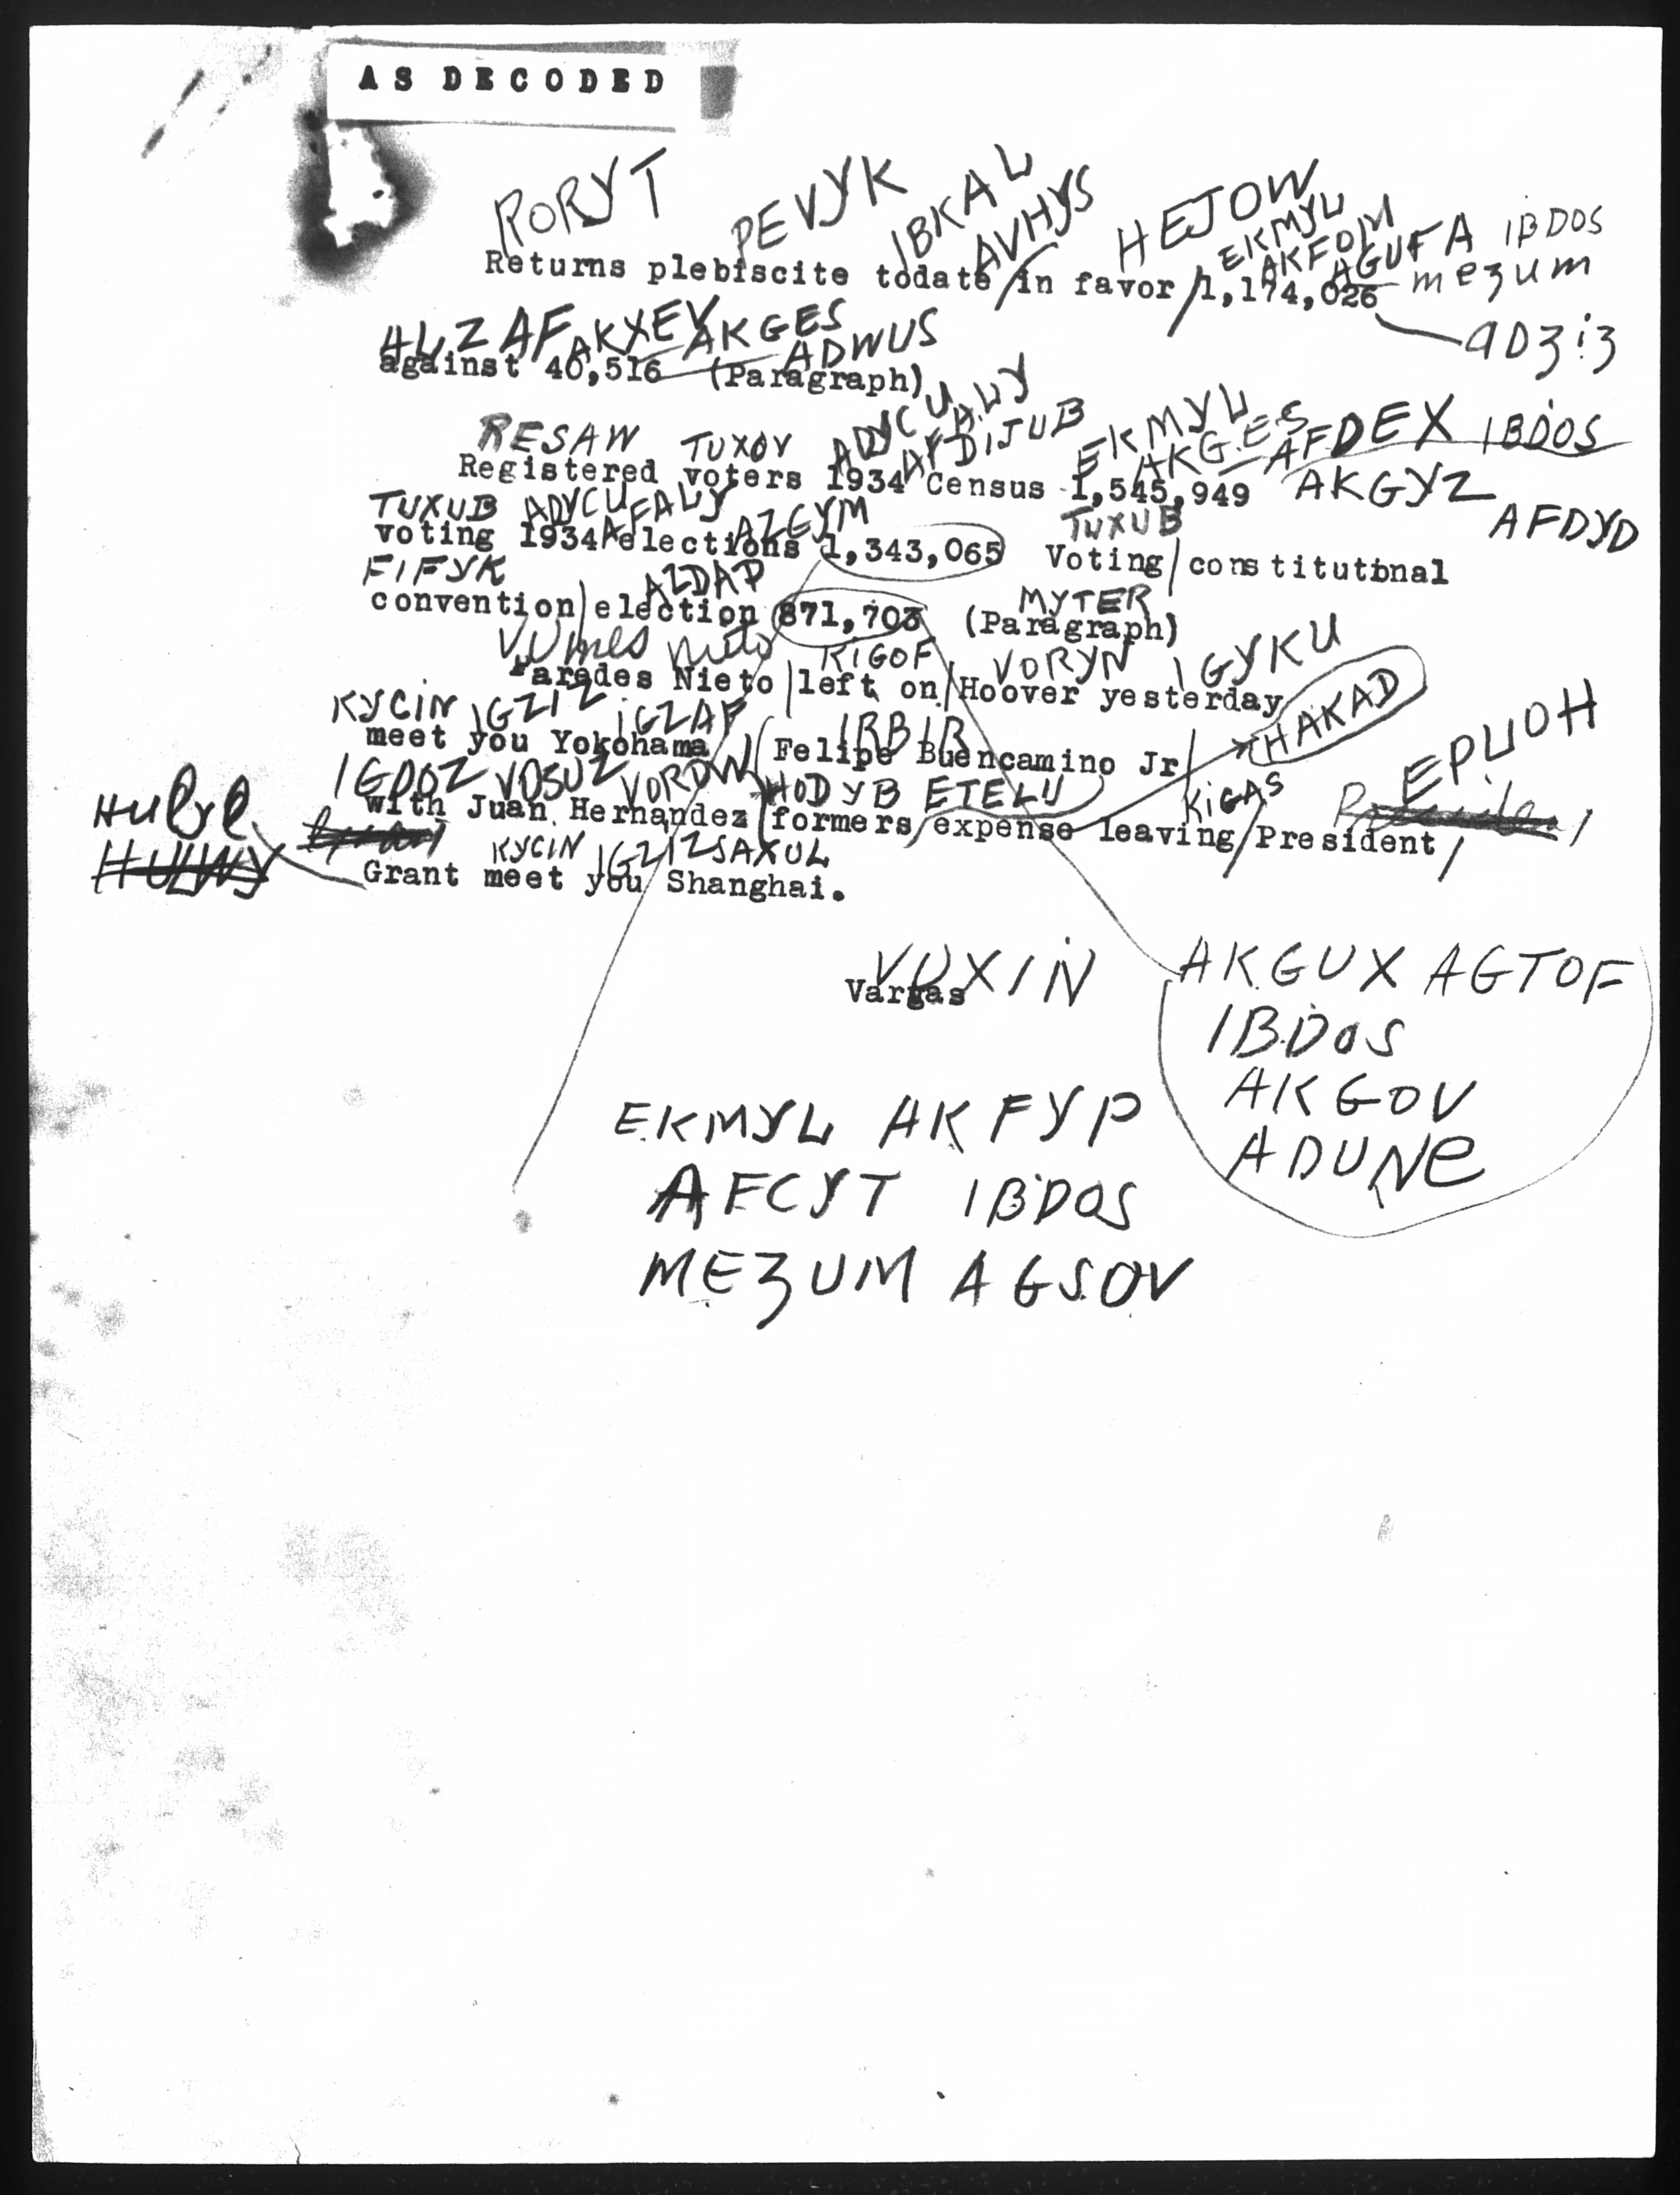 AS DECODED
RORYT PEVYK IBKAL AVHYS HEJOW EKMYL AKFOM AGUFA IBDOS
Returns plebiscite todate/in favor/1,174,026 mezum
ADZIZ
AKXEV AKGES ADWUS
against 40,516 (Paragraph)
RESAW TUXOV EKMYL AKGES AFDEX IBDOS
Registered voters 1934 Census 1,545,949 AKGYZ
AFDYD
TUXUB AZGYM TUXUB
voting 1934 elections 1,343,065 Voting/constitutional
FIFYK AZDAP MYTER
convention/election 871,703 (Paragraph)
RIGOF VORYN IGYKU
Paredes Nieto/left on/Hoover yesterday
KYCIN IGZIZ IGZAP IRBIR HAKAD
meet you Yokohama/(Felipe Buencamino Jr/
VOSUZ VORDW HODYB ETELU KIGAS EPUOH
with Juan Hernandez/formers/expense leaving/President/
KYCIN IGZIZ SAXUL
Grant meet you/Shanghai.
VUXIN
Vargas
AKGUX AGTOF
IBDOS
AKGOV
ADUNE
EKMYL AKFYP
AFCYT IBDOS
MEZUM AGSOV